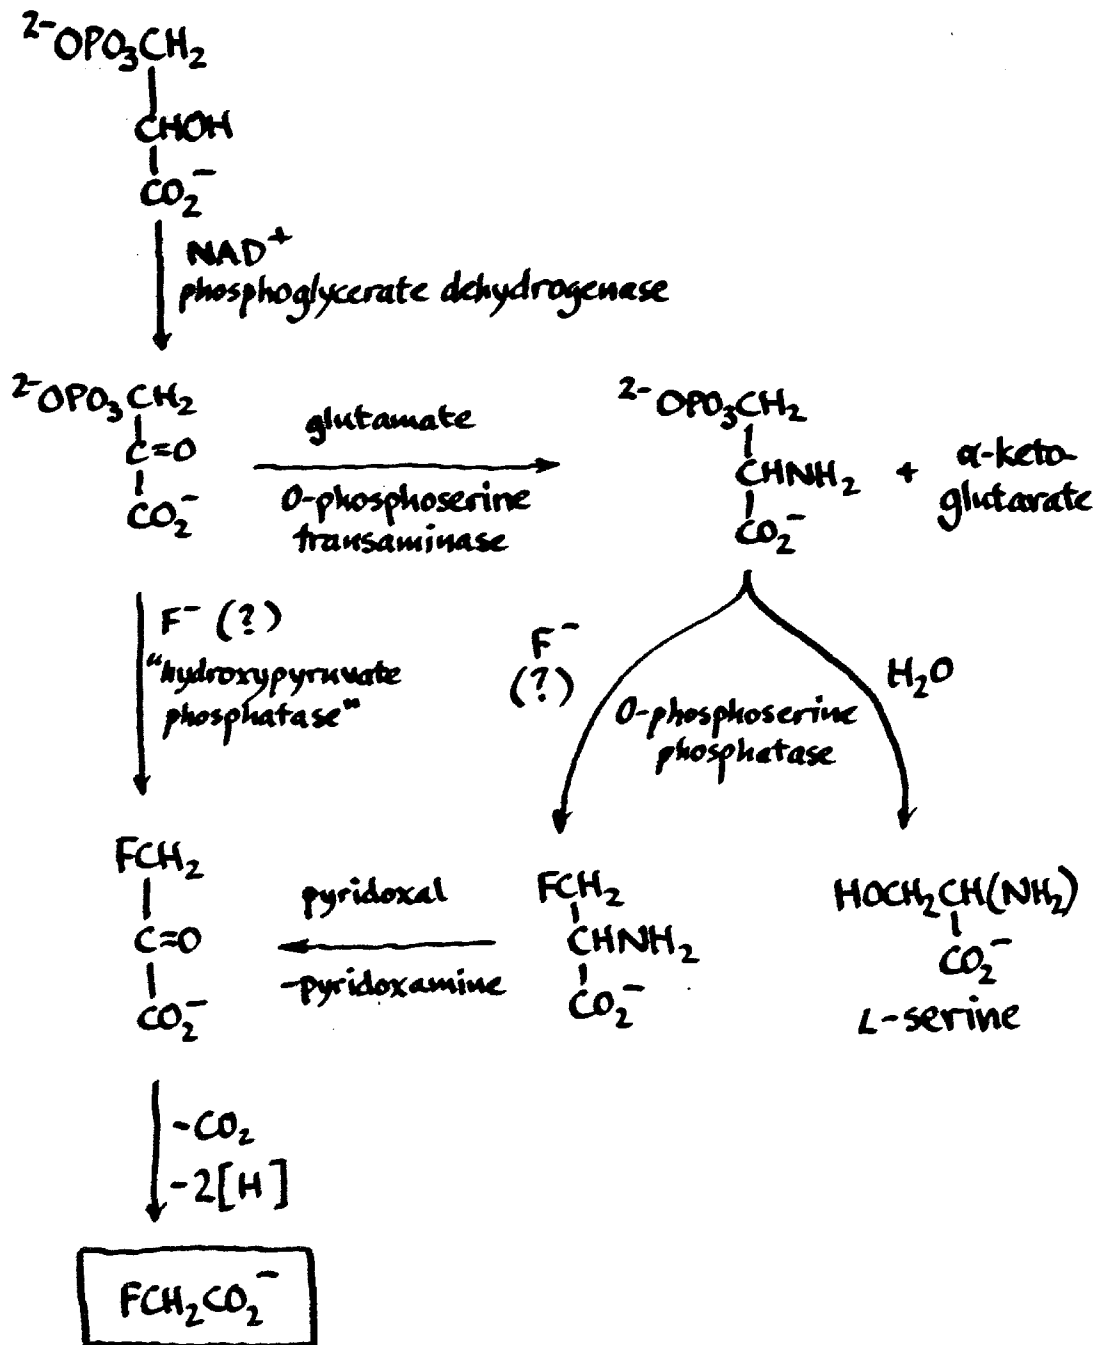 ²⁻OPO₃CH₂
CHOH
CO₂⁻
NAD⁺
phosphoglycerate dehydrogenase
²⁻OPO₃CH₂
C=O
CO₂⁻
glutamate
O-phosphoserine
transaminase
²⁻OPO₃CH₂
CHNH₂
CO₂⁻
+
α-keto-
glutarate
F⁻ (?)
"hydroxypyruvate
phosphatase"
F⁻
(?)
O-phosphoserine
phosphatase
H₂O
FCH₂
C=O
CO₂⁻
pyridoxal
-pyridoxamine
FCH₂
CHNH₂
CO₂⁻
HOCH₂CH(NH₂)
CO₂⁻
L-serine
-CO₂
-2[H]
FCH₂CO₂⁻